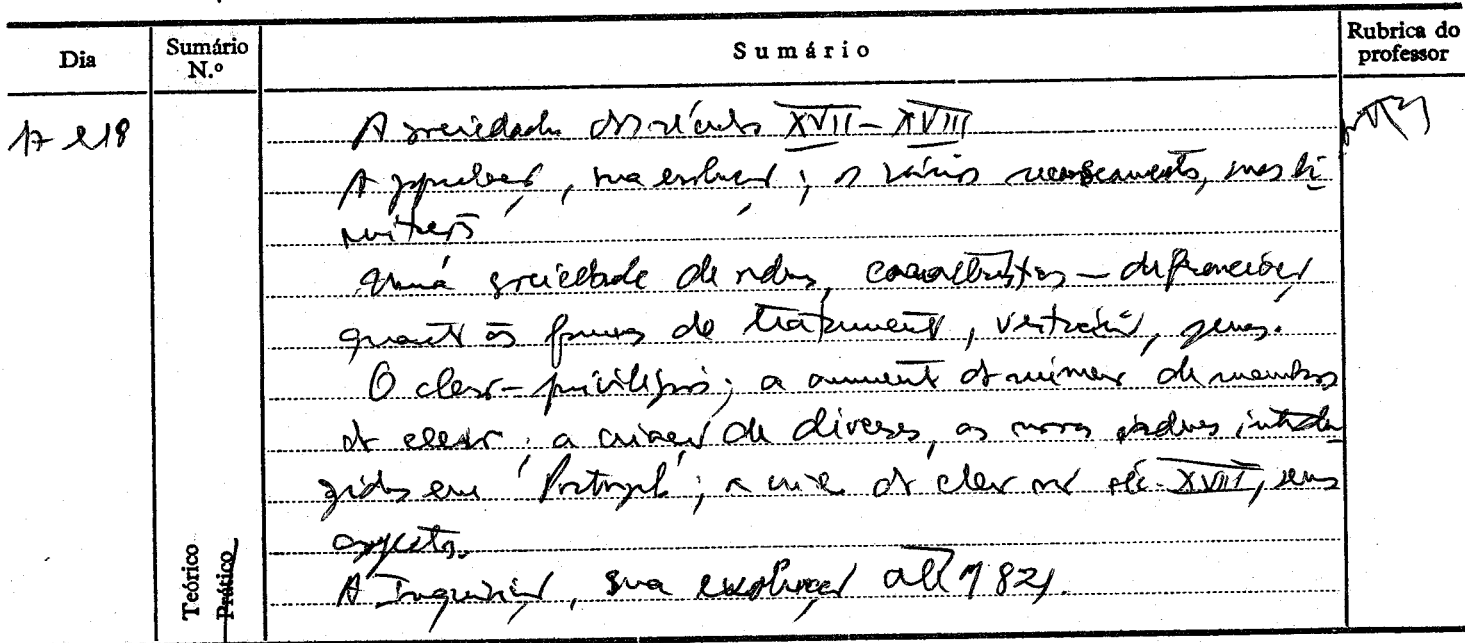 Dia
Sumário N.º
Sumário
Rubrica do professor
17 e 18
A sociedade dos séculos XVII-XVIII
A população, sua evolução; os vários recenseamentos, suas li-
mitações
Uma sociedade de ordens, características - diferenciações
quanto às formas de tratamento, vestuário, penas.
O clero - privilégios; o aumento do número de membros
do clero; a criação de dioceses, as novas ordens introdu-
zidas em Portugal; a crise do clero no séc. XVIII, seus
aspectos.
A Inquisição, sua evolução até 1821.
Teórico
Prático